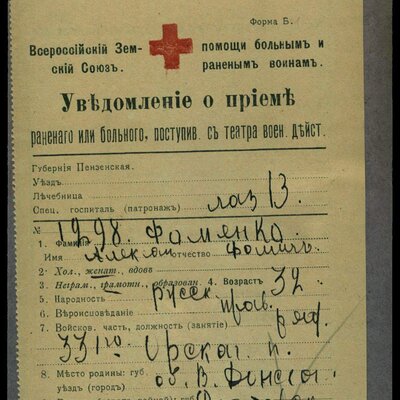 Форма Б.
Всероссійскій Зем- помощи больнымъ и
скій Союзъ. раненымъ воинамъ.
Увѣдомленіе о пріемѣ
раненаго или больного, поступив. съ театра воен. дѣйст.
Губернія Пензенская.
Уѣздъ
Лѣчебница
Спец. госпиталь (патронажъ) лаз 13.
№ 1298.
1. Фамилія Фоменко
Имя Александ отчество Фомичъ
2. Хол., женат., вдовъ
3. Неграм., грамотн., образован. 4. Возрастъ 32
5. Народность русск
6. Вѣроисповѣданіе прав.
7. Войсков. часть, должность (занятіе) ряд.
331го Орскаг. п.
8. Мѣсто родины: губ. об. В. Донског.
уѣздъ (городъ)